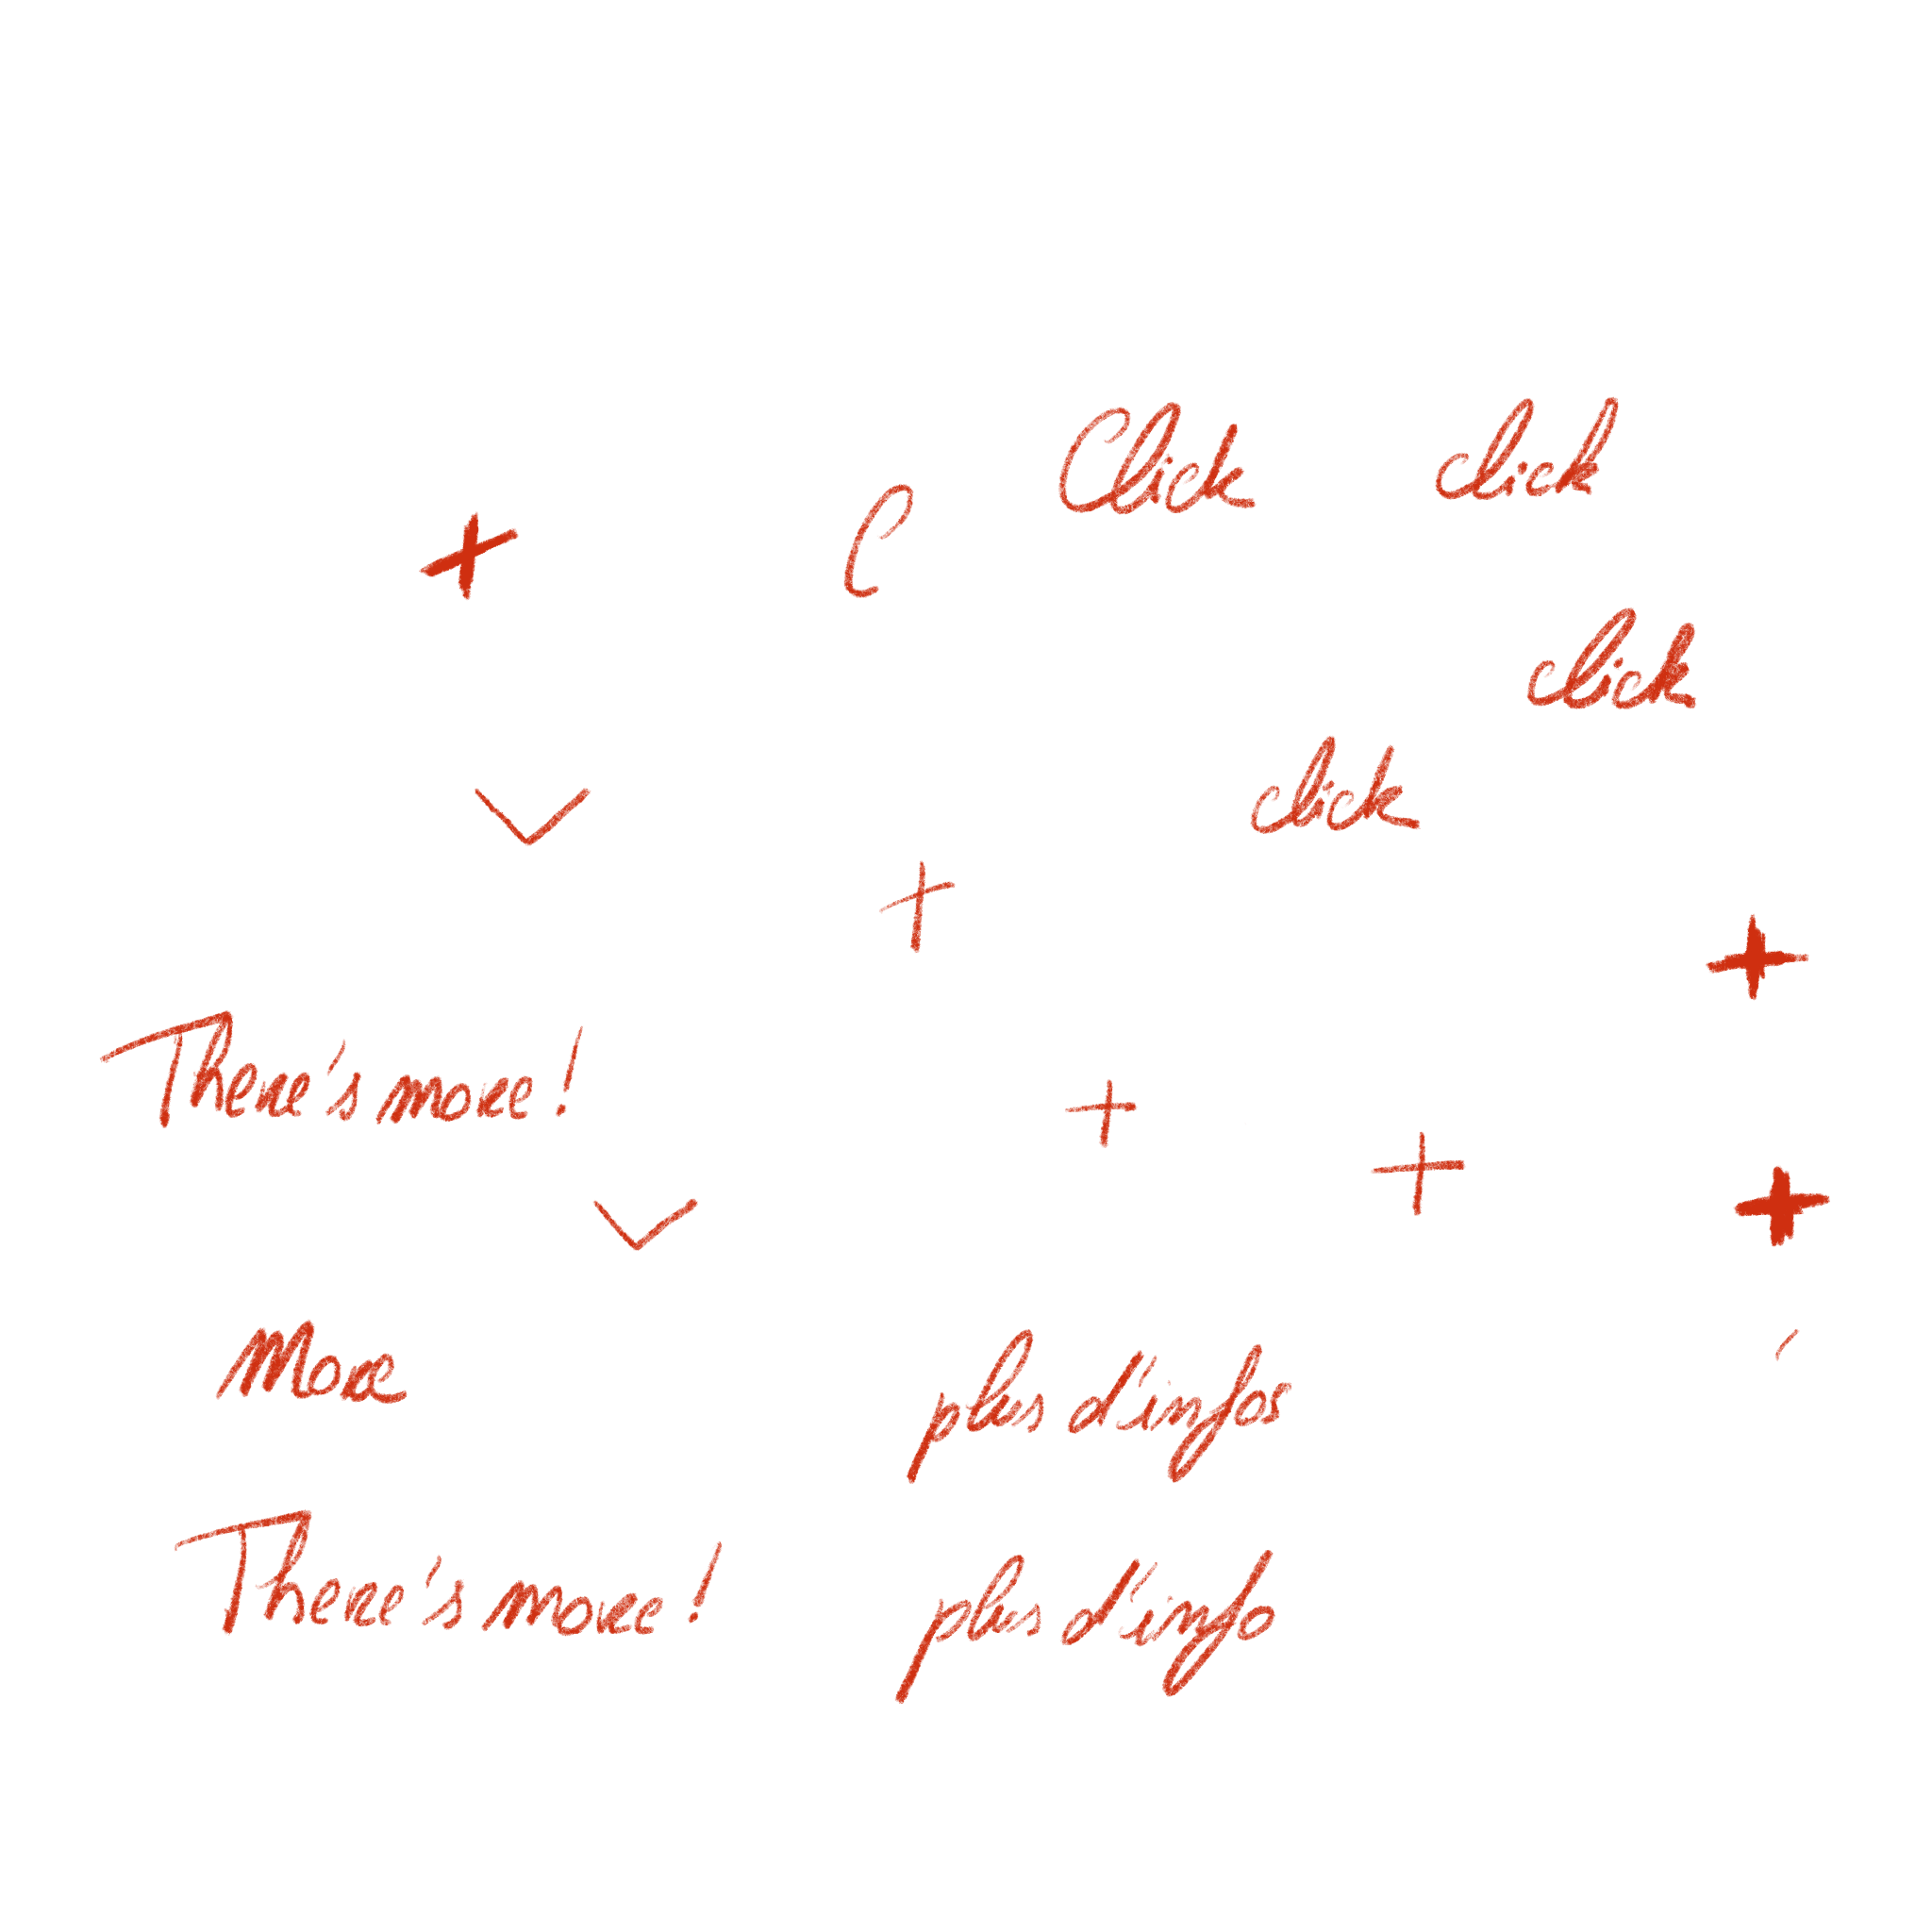 Click click
C
+
click
click
+
+
There's more!
+
+
+
More
plus d'infos
There's more!
plus d'info